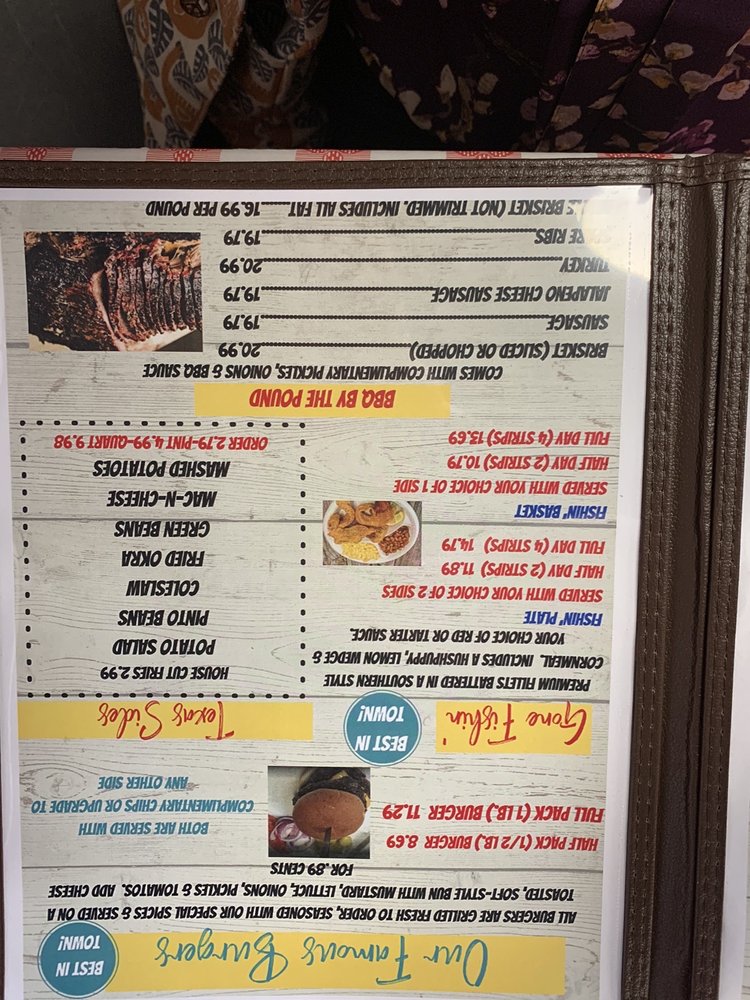 Our Famous Burgers
BEST IN
TOWN!
ALL BURGERS ARE GRILLED FRESH TO ORDER, SEASONED WITH OUR SPECIAL SPICES & SERVED ON A
TOASTED, SOFT-STYLE BUN WITH MUSTARD, LETTUCE, ONIONS, PICKLES & TOMATOS. ADD CHEESE
FOR .89 CENTS
HALF PACK (1/2 LB.) BURGER 8.69
FULL PACK (1 LB.) BURGER 11.29
BOTH ARE SERVED WITH
COMPLIMENTARY CHIPS OR UPGRADE TO
ANY OTHER SIDE
Gone Fishin'
BEST IN
TOWN!
PREMIUM FILLETS BATTERED IN A SOUTHERN STYLE
CORNMEAL. INCLUDES A HUSHPUPPY, LEMON WEDGE &
YOUR CHOICE OF RED OR TARTER SAUCE.
FISHIN' PLATE
SERVED WITH YOUR CHOICE OF 2 SIDES
HALF DAY (2 STRIPS) 11.89
FULL DAY (4 STRIPS) 14.79
FISHIN' BASKET
SERVED WITH YOUR CHOICE OF 1 SIDE
HALF DAY (2 STRIPS) 10.79
FULL DAY (4 STRIPS) 13.69
Texas Sides
HOUSE CUT FRIES 2.99
POTATO SALAD
PINTO BEANS
COLESLAW
FRIED OKRA
GREEN BEANS
MAC-N-CHEESE
MASHED POTATOES
ORDER 2.79-PINT 4.99-QUART 9.98
BBQ BY THE POUND
COMES WITH COMPLIMENTARY PICKLES, ONIONS & BBQ SAUCE
BRISKET (SLICED OR CHOPPED)..........20.99
SAUSAGE..........19.79
JALAPENO CHEESE SAUSAGE..........19.79
TURKEY..........20.99
RIBS..........19.79
BRISKET (NOT TRIMMED. INCLUDES ALL FAT..........16.99 PER POUND